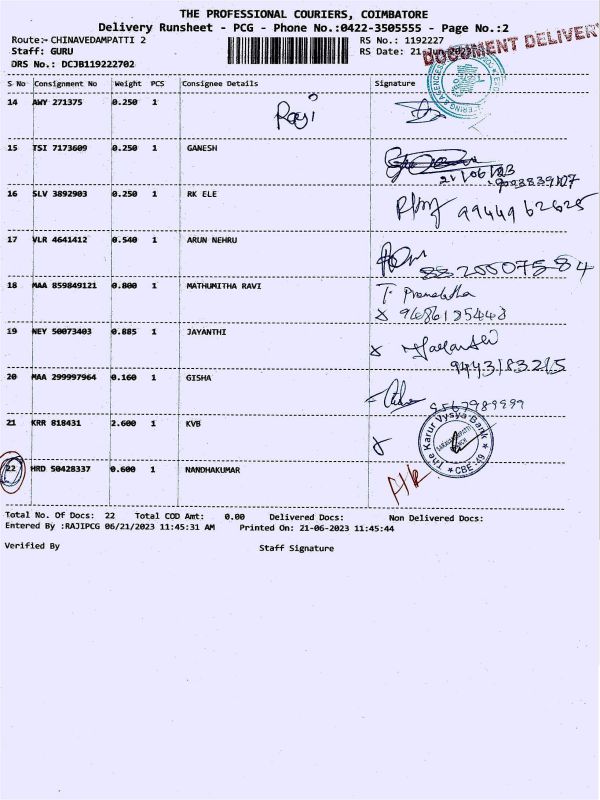 THE PROFESSIONAL COURIERS, COIMBATORE
Delivery Runsheet - PCG - Phone No.:0422-3505555 - Page No.:2
Route:- CHINAVEDAMPATTI 2 RS No.: 1192227
Staff: GURU RS Date: 21 Jun 2023
DOCUMENT DELIVERY
DRS No.: DCJB119222702
S No Consignment No Weight PCS Consignee Details Signature
14 AWY 271375 0.250 1 Raji
15 TSI 7173609 0.250 1 GANESH
21/06/23
9003839107
16 SLV 3892903 0.250 1 RK ELE
9944962625
17 VLR 4641412 0.540 1 ARUN NEHRU
8820007584
18 MAA 859849121 0.800 1 MATHUMITHA RAVI
x 9486125443
19 NEY 50073403 0.885 1 JAYANTHI
x Jayanthi
9443183215
20 MAA 299997964 0.160 1 GISHA
9567989999
21 KRR 818431 2.600 1 KVB
The Karur Vysya Bank
CBE-49
22 HRD 50428337 0.600 1 NANDHAKUMAR
Total No. Of Docs: 22 Total COD Amt: 0.00 Delivered Docs: Non Delivered Docs:
Entered By :RAJIPCG 06/21/2023 11:45:31 AM Printed On: 21-06-2023 11:45:44
Verified By Staff Signature